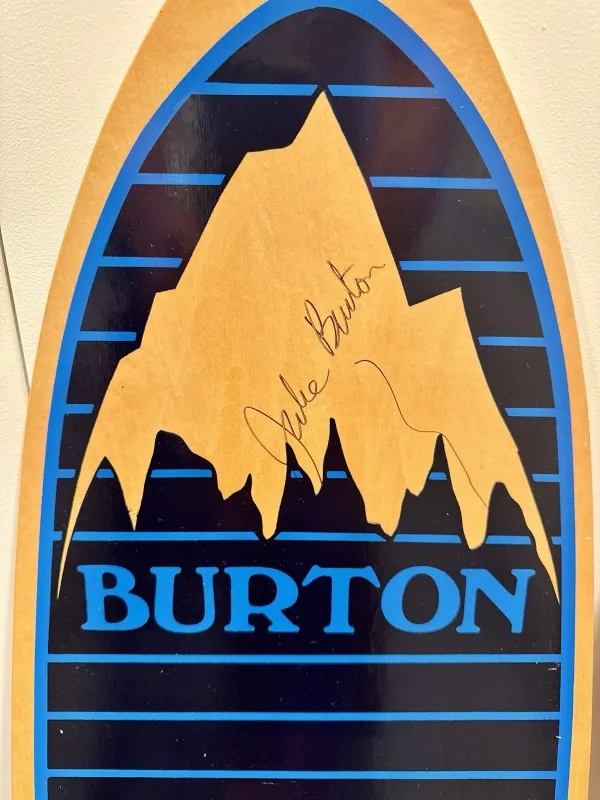 Jake Burton
BURTON